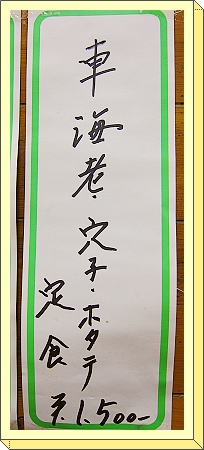 車海老・穴子・ホタテ
定食
¥.1,500-